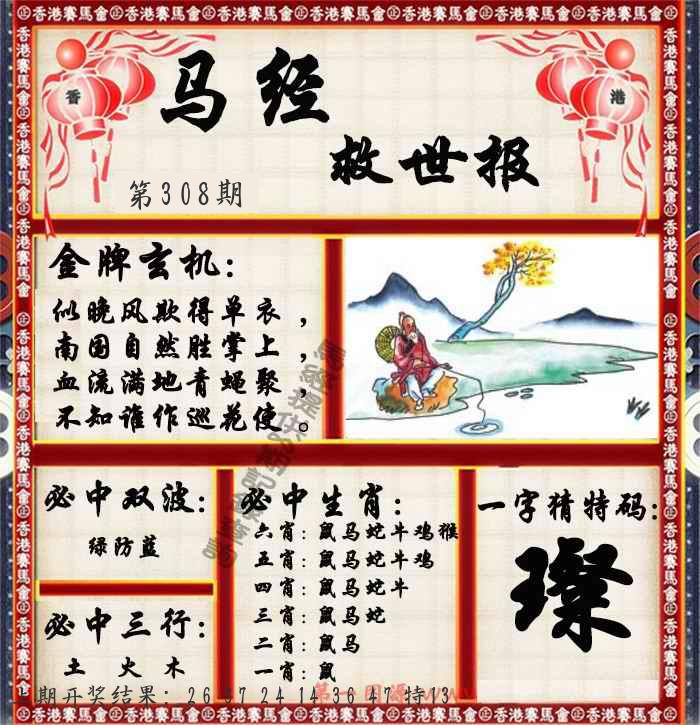 香港賽馬會
香
港
马经
救世报
第308期
金牌玄机:
似晚风欺得单衣，
南国自然胜掌上，
血流满地青蝇聚，
不知谁作巡花使。
必中双波:
绿防蓝
必中三行:
土 火 木
必中生肖:
六肖: 鼠马蛇牛鸡猴
五肖: 鼠马蛇牛鸡
四肖: 鼠马蛇牛
三肖: 鼠马蛇
二肖: 鼠马
一肖: 鼠
一字猜特码:
璨
期开奖结果: 26 37 24 14 36 47 特13